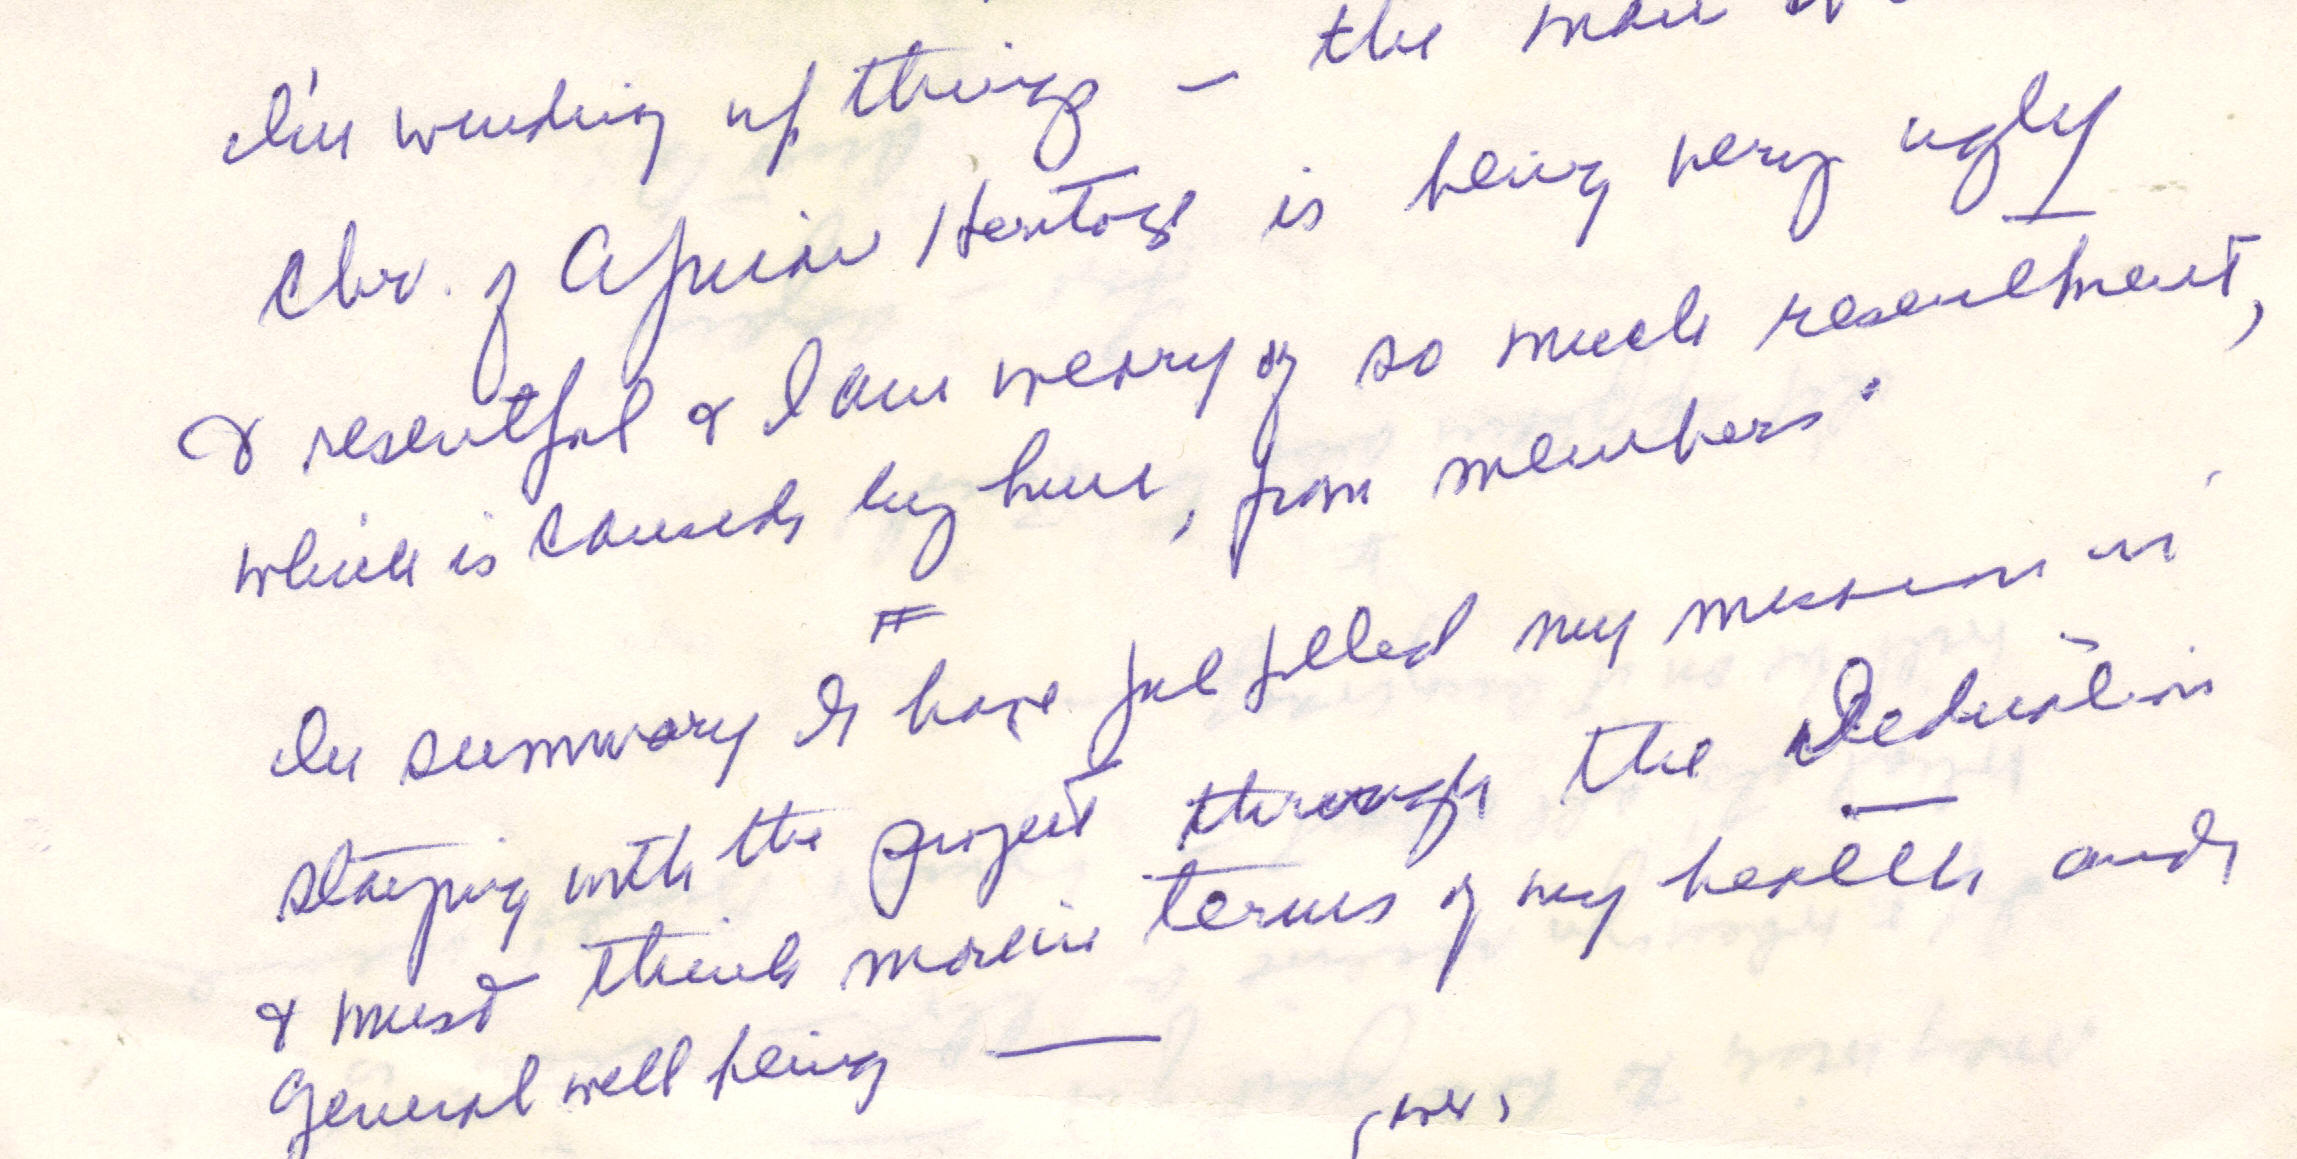 I'm winding up things — the man
Chr. of African Heritage is being very ugly
& resentful & I am weary of so much resentment,
which is caused by him, from members.
#
In summary I have fulfilled my mission in
staying with the project through the Dedication
& must think more in terms of my health and
general well being —
(over)